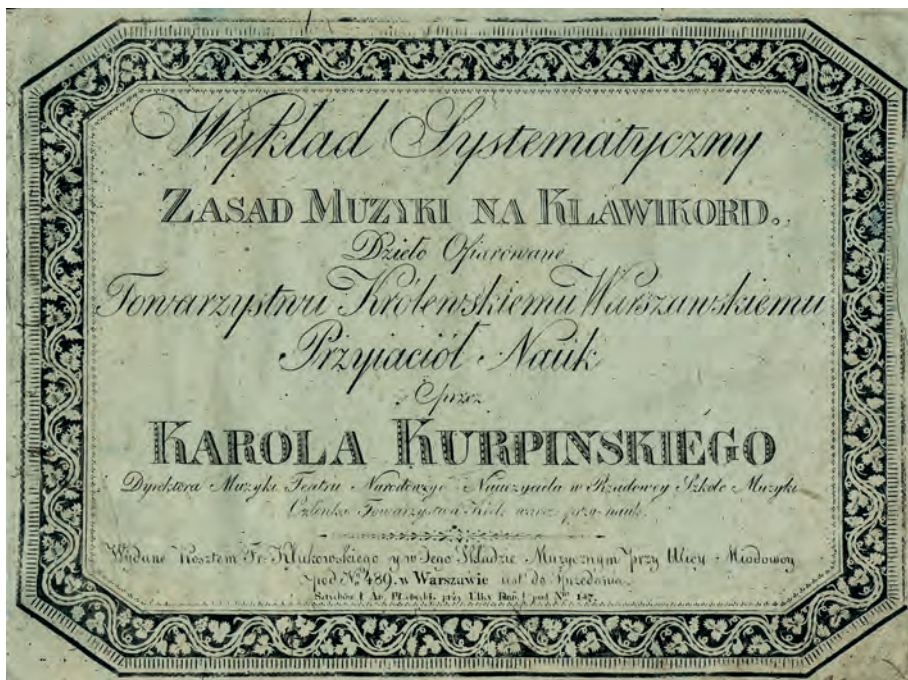 Wykład Systematyczny
ZASAD MUZYKI NA KLAWIKORD.
Dzieło Ofiarowane
Towarzystwu Królewskiemu Warszawskiemu
Przyiaciół Nauk
przez
KAROLA KURPINSKIEGO
Dyrektora Muzyki Teatru Narodowego Nauczyciela w Rządowey Szkole Muzyki
Członka Towarzystwa Król. warsz. przy. nauk.
Wydane Kosztem Fr. Klukowskiego y w Jego Składzie Muzycznym przy Ulicy Miodowey
pod No. 489. w Warszawie iest do Sprzedania
przy Ulicy pod Nro 157.